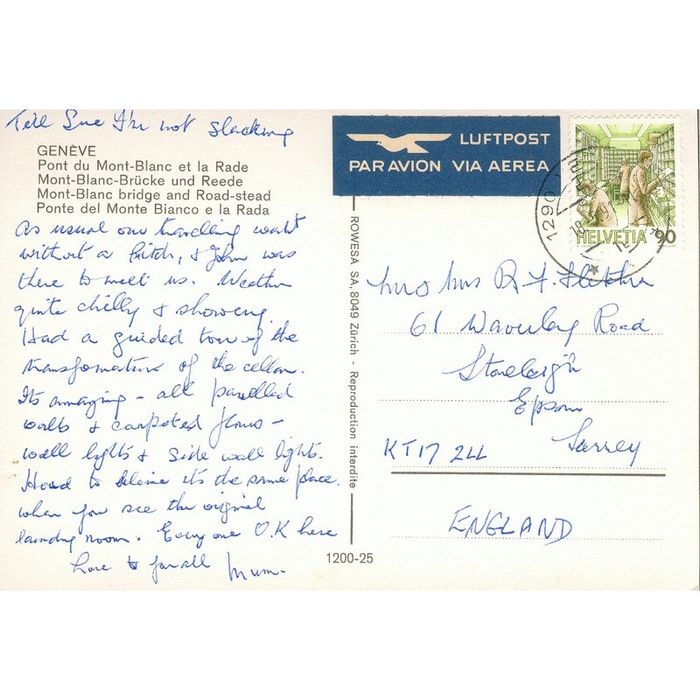 Tell Sue I'm not slacking
GENÈVE
Pont du Mont-Blanc et la Rade
Mont-Blanc-Brücke und Reede
Mont-Blanc bridge and Road-stead
Ponte del Monte Bianco e la Rada
As usual our travelling went
without a hitch, & John was
there to meet us. Weather
quite chilly & showery.
Had a guided tour of the
transformation of the cellar.
Its amazing - all panelled
walls & carpeted floors -
wall lights & side wall lights.
Hard to believe it's the same place
when you see the original
laundry room. Everyone O.K here
Love to you all Mum.
LUFTPOST
PAR AVION VIA AEREA
1290
HELVETIA 90
ROWESA SA, 8049 Zürich - Reproduction interdite
Mr & Mrs R. F. Fletcher
61 Waverley Road
Stoneleigh
Epsom
KT17 2LL Surrey
ENGLAND
1200-25